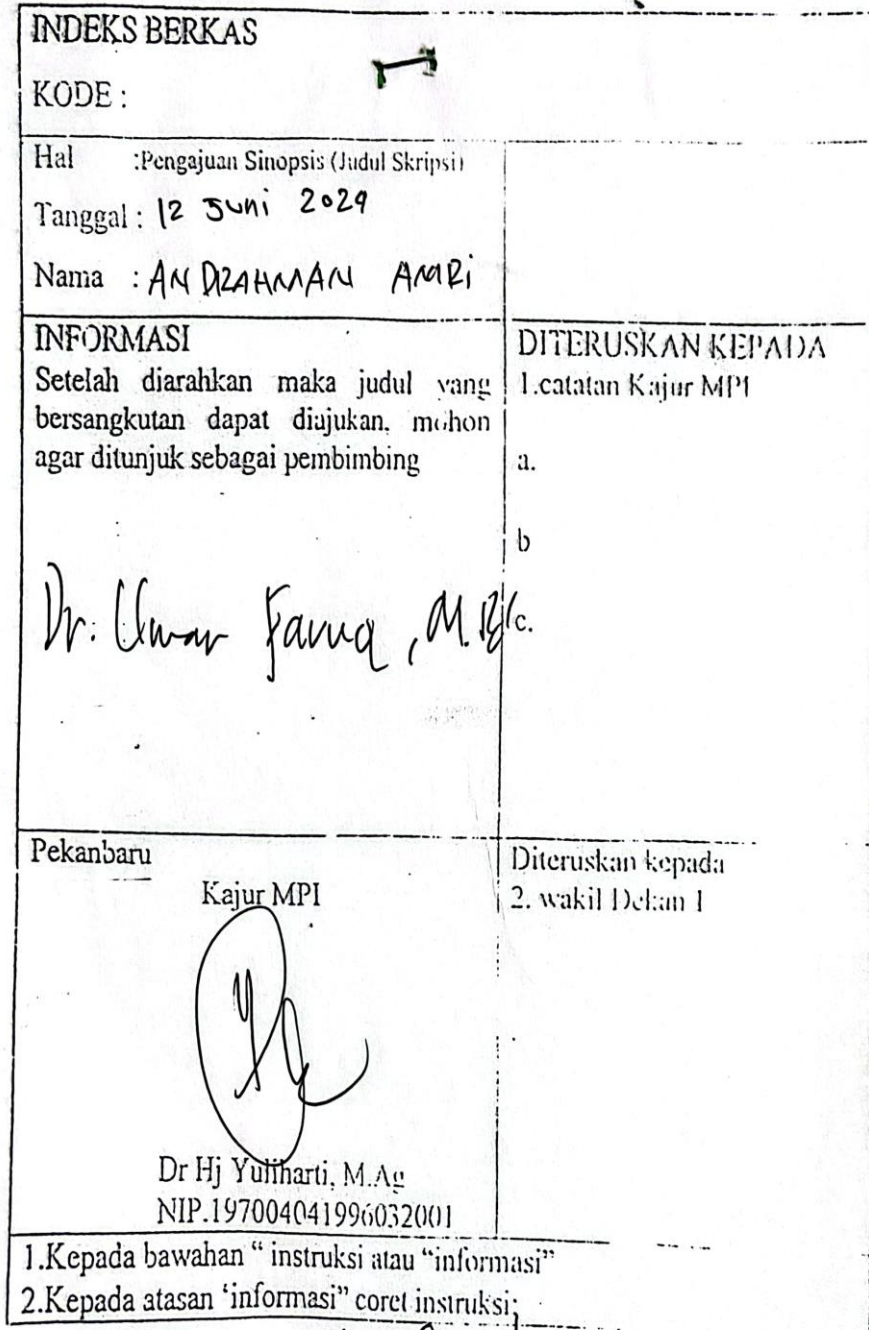 INDEKS BERKAS
KODE :
Hal :Pengajuan Sinopsis (Judul Skripsi)
Tanggal : 12 Juni 2024
Nama : ANDRAHMAN AMRI
INFORMASI
Setelah diarahkan maka judul yang
bersangkutan dapat diajukan, mohon
agar ditunjuk sebagai pembimbing
Dr. Umar Faruq, M.
DITERUSKAN KEPADA
1.catatan Kajur MPI
a.
b
c.
Pekanbaru
Kajur MPI
Dr Hj Yuliharti, M.Ag
NIP.197004041996032001
Diteruskan kepada
2. wakil Dekan 1
1.Kepada bawahan “ instruksi atau “informasi”
2.Kepada atasan ‘informasi” coret instruksi;